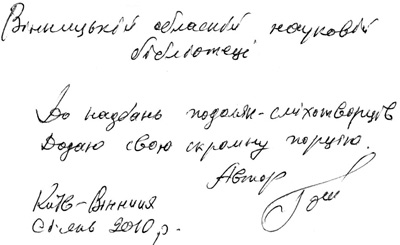 Вінницькій обласній науковій
бібліотеці
До надбань подолян-сміхотворців
Додаю свою скромну порцію.
Автор
Київ-Вінниця
Січень 2010 р.